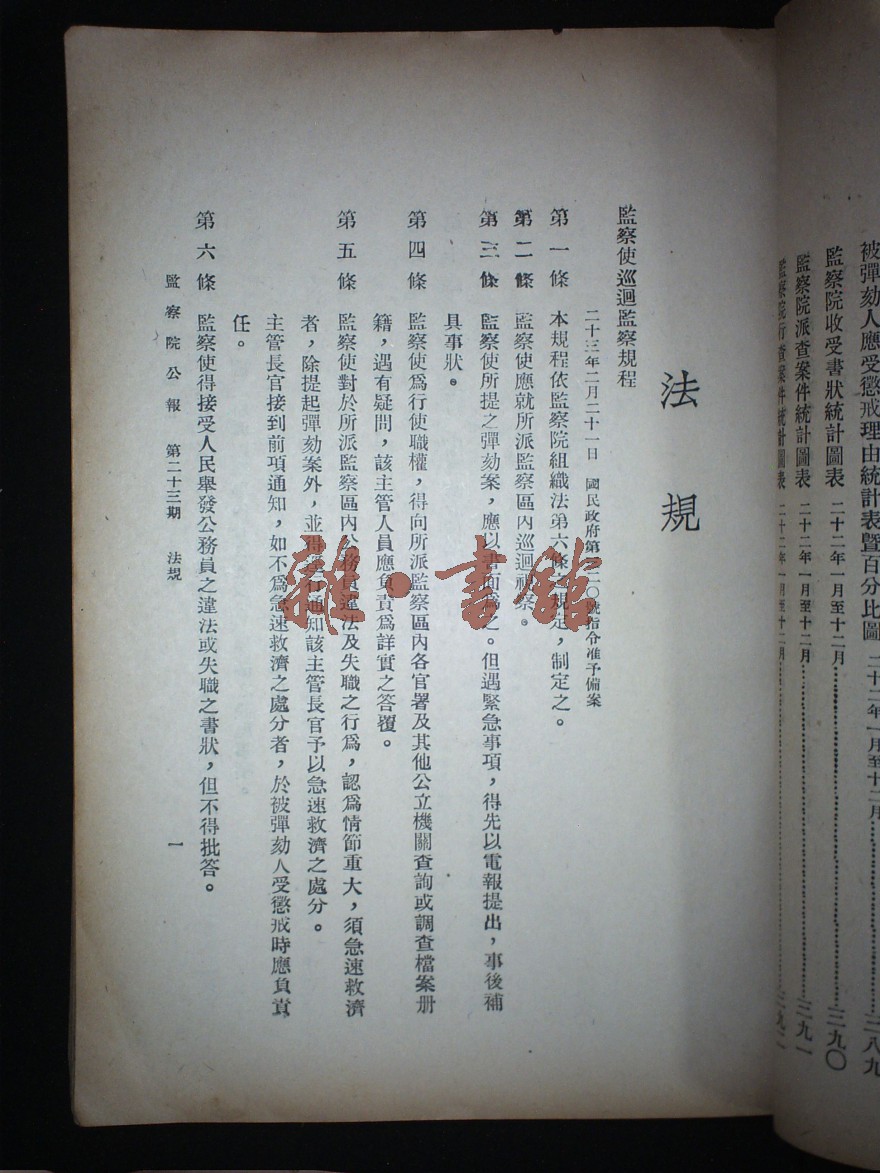 被彈劾人應受懲戒理由統計表暨百分比圖 二十二年一月至十二月……三八九
監察院收受書狀統計圖表 二十二年一月至十二月……三九〇
監察院派查案件統計圖表 二十二年一月至十二月……三九一
監察院行查案件統計圖表 二十二年一月至十二月……三九二
法規
監察使巡迴監察規程
二十三年二月二十一日 國民政府第 二〇號指令准予備案
第一條 本規程依監察院組織法第六條之規定，制定之。
第二條 監察使應就所派監察區內巡迴視察。
第三條 監察使所提之彈劾案，應以書面爲之。但遇緊急事項，得先以電報提出，事後補
具事狀。
第四條 監察使爲行使職權，得向所派監察區內各官署及其他公立機關查詢或調查檔案册
籍，遇有疑問，該主管人員應負責爲詳實之答覆。
第五條 監察使對於所派監察區內公務員違法及失職之行爲，認爲情節重大，須急速救濟
者，除提起彈劾案外，並得逕行通知該主管長官予以急速救濟之處分。
主管長官接到前項通知，如不爲急速救濟之處分者，於被彈劾人受懲戒時應負責
任。
第六條 監察使得接受人民舉發公務員之違法或失職之書狀，但不得批答。
監察院公報 第二十三期 法規 一
雜·書館